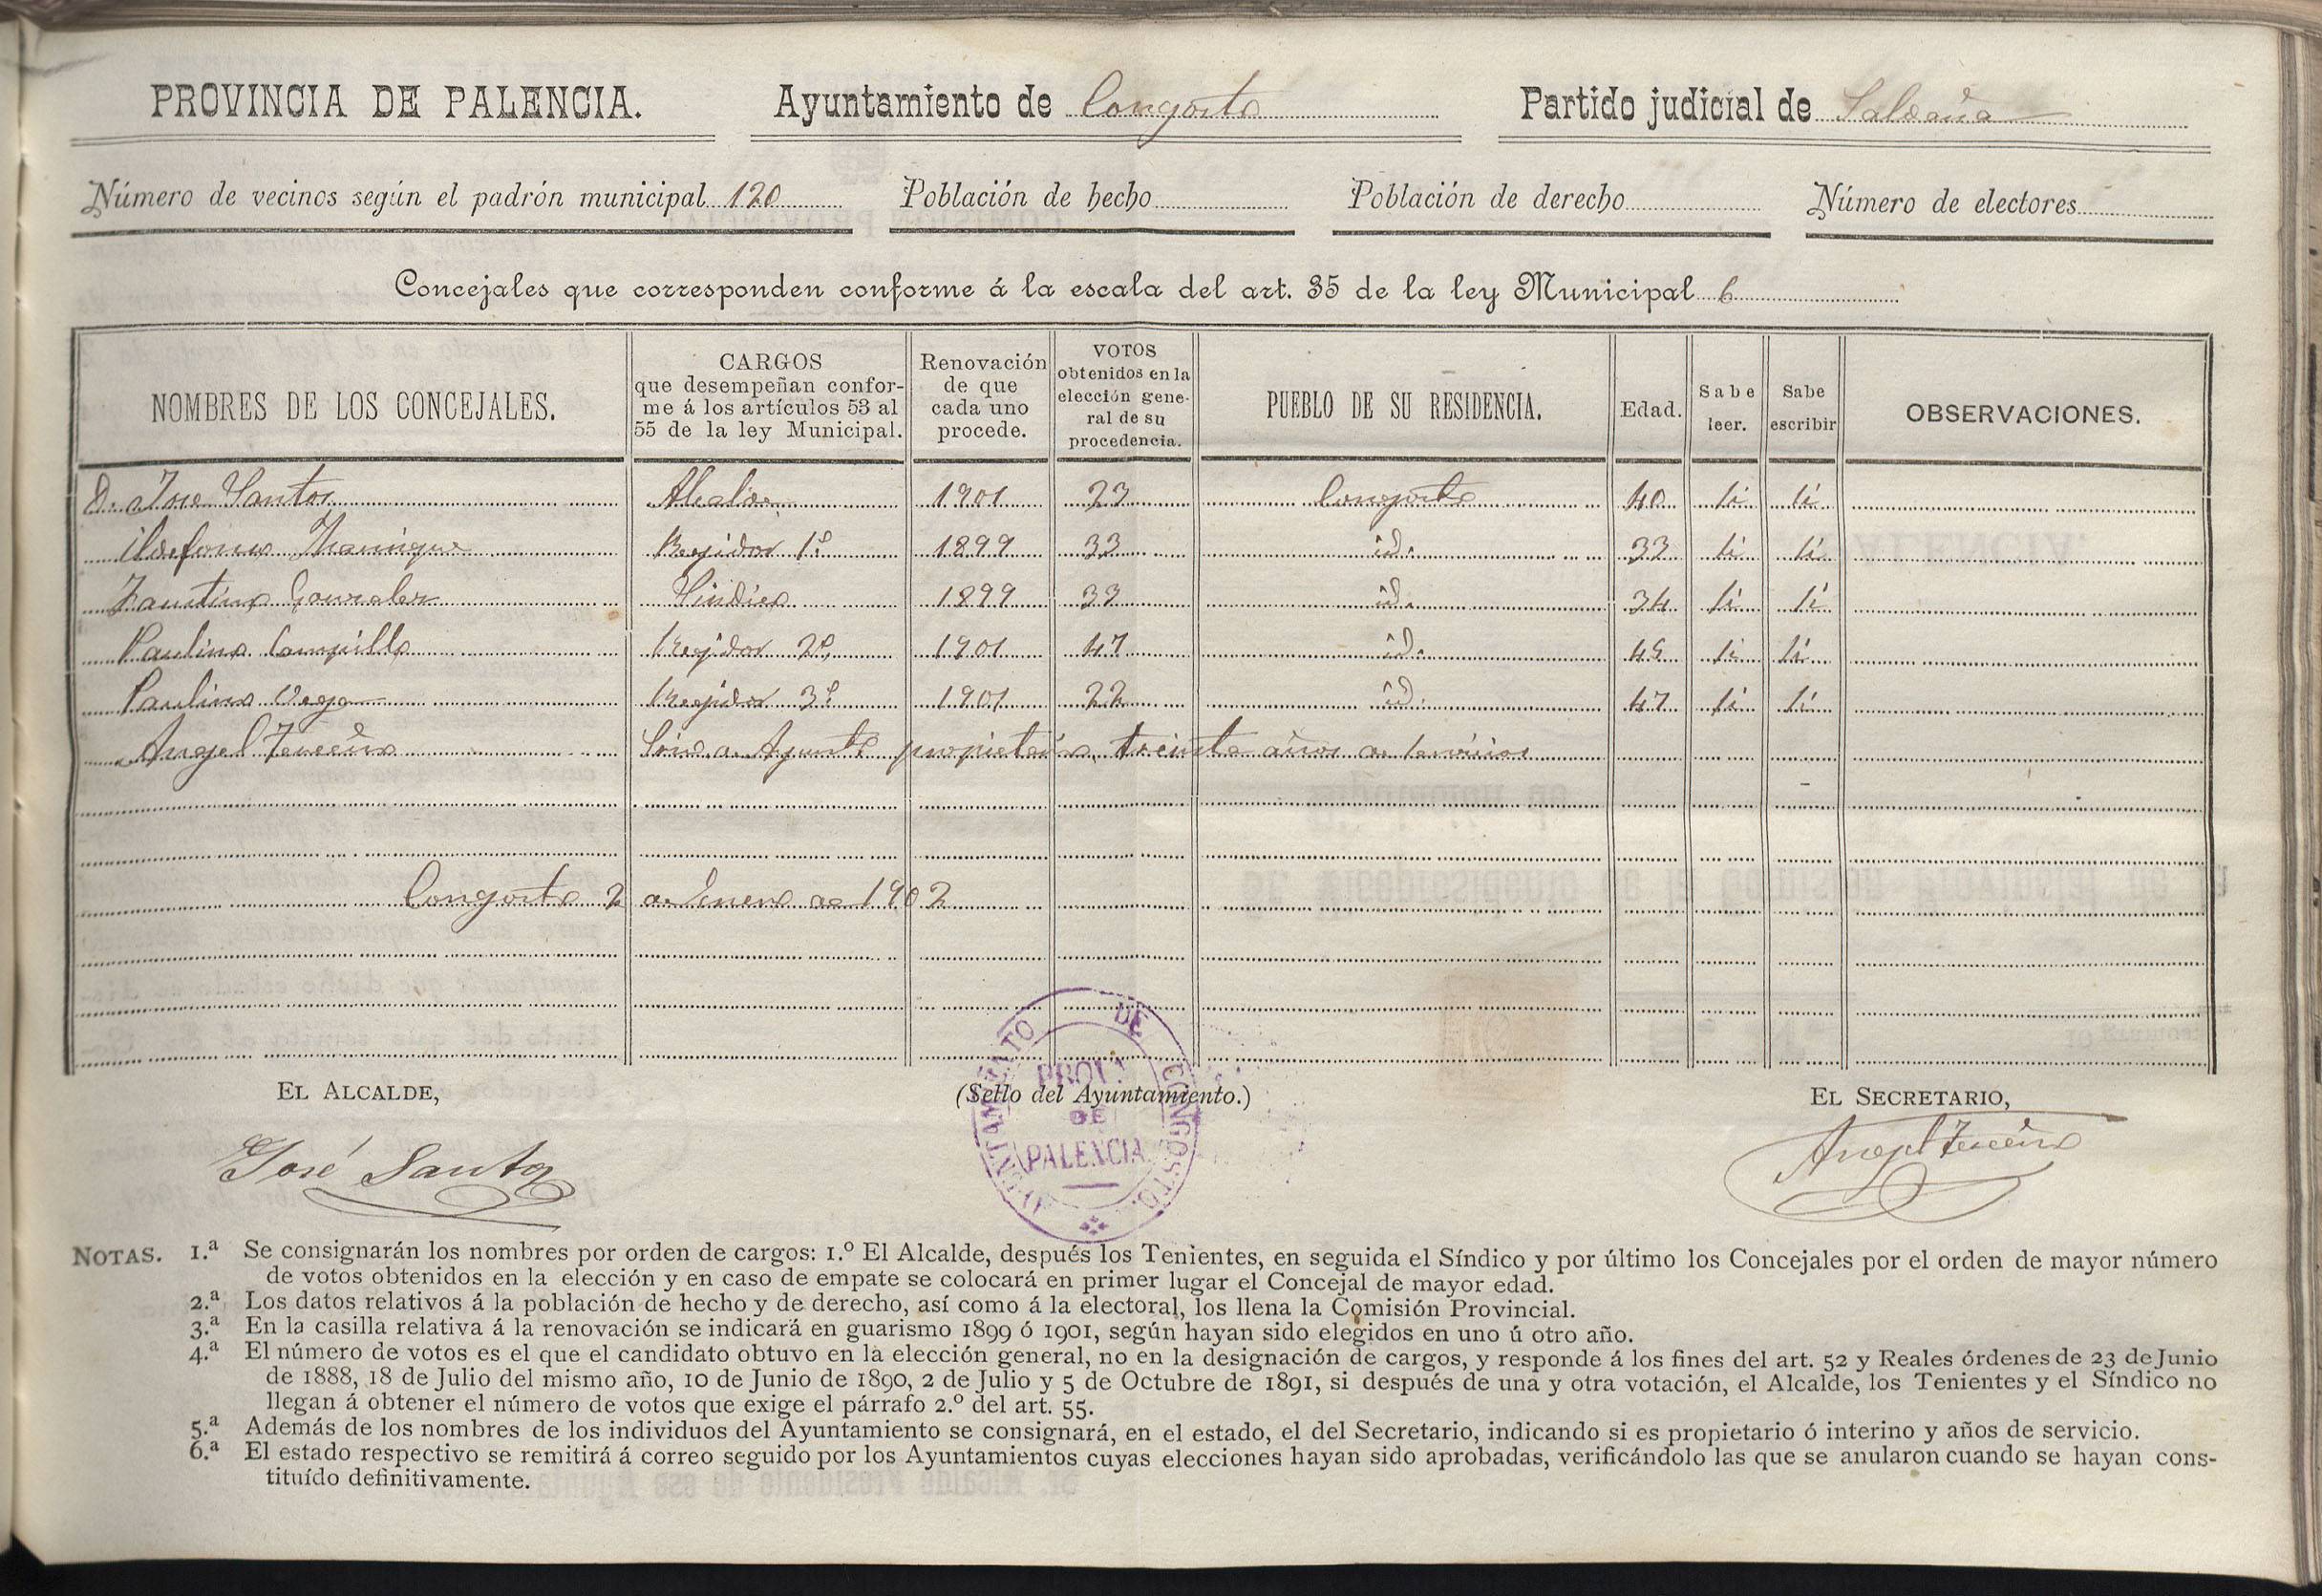 PROVINCIA DE PALENCIA. Ayuntamiento de Congosto Partido judicial de Saldaña
Número de vecinos según el padrón municipal 120 Población de hecho Población de derecho Número de electores
Concejales que corresponden conforme á la escala del art. 35 de la ley Municipal 6
NOMBRES DE LOS CONCEJALES. CARGOS que desempeñan conforme á los artículos 53 al 55 de la ley Municipal. Renovación de que cada uno procede. VOTOS obtenidos en la elección general de su procedencia. PUEBLO DE SU RESIDENCIA. Edad. Sabe leer. Sabe escribir OBSERVACIONES.
D. Jose Santos Alcalde 1901 23 Congosto 40 si si
Ildefonso Manrique Regidor 1º 1899 33 id. 33 si si
Faustino Gonzalez Sindico 1899 33 id. 34 si si
Paulino Campillo Regidor 2º 1901 47 id. 45 si si
Paulino Vega Regidor 3º 1901 22 id. 47 si si
Angel Terceño Srio de Ayunto propietario, treinta años de servicios
Congosto 2 de Enero de 1902
EL ALCALDE, (Sello del Ayuntamiento.) EL SECRETARIO,
José Santos AYUNTAMIENTO DE CONGOSTO. PROV.ª DE PALENCIA Angel Terceño
NOTAS. 1.ª Se consignarán los nombres por orden de cargos: 1.º El Alcalde, después los Tenientes, en seguida el Síndico y por último los Concejales por el orden de mayor número
de votos obtenidos en la elección y en caso de empate se colocará en primer lugar el Concejal de mayor edad.
2.ª Los datos relativos á la población de hecho y de derecho, así como á la electoral, los llena la Comisión Provincial.
3.ª En la casilla relativa á la renovación se indicará en guarismo 1899 ó 1901, según hayan sido elegidos en uno ú otro año.
4.ª El número de votos es el que el candidato obtuvo en la elección general, no en la designación de cargos, y responde á los fines del art. 52 y Reales órdenes de 23 de Junio
de 1888, 18 de Julio del mismo año, 10 de Junio de 1890, 2 de Julio y 5 de Octubre de 1891, si después de una y otra votación, el Alcalde, los Tenientes y el Síndico no
llegan á obtener el número de votos que exige el párrafo 2.º del art. 55.
5.ª Además de los nombres de los individuos del Ayuntamiento se consignará, en el estado, el del Secretario, indicando si es propietario ó interino y años de servicio.
6.ª El estado respectivo se remitirá á correo seguido por los Ayuntamientos cuyas elecciones hayan sido aprobadas, verificándolo las que se anularon cuando se hayan cons-
tituído definitivamente.